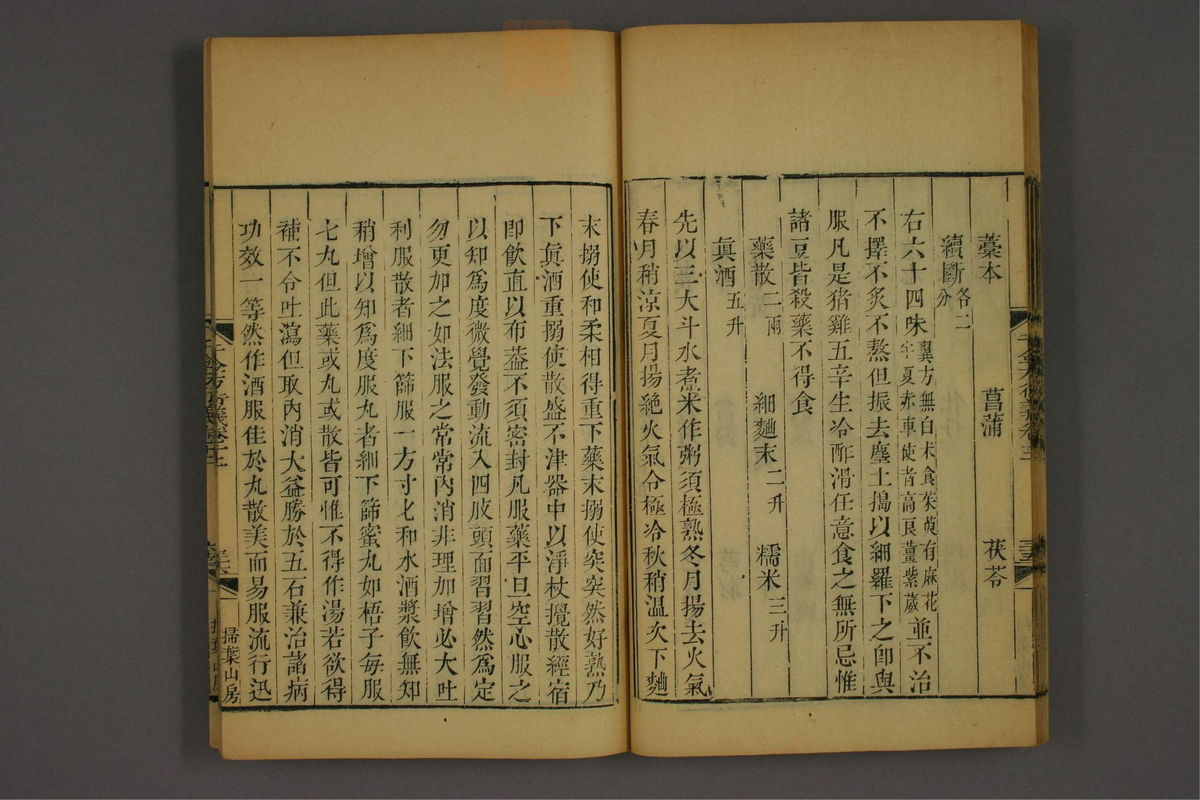 藁本 菖蒲 茯苓
續斷各二分
右六十四味翼方無白术食茱萸有麻花半夏赤車使者高良薑紫葳並不治
不擇不炙不熬但振去塵土搗以細羅下之卽與
服凡是猪雞五辛生冷酢滑任意食之無所忌惟
諸豆皆殺藥不得食
藥散二兩 細麯末二升 糯米三升
眞酒五升
先以三大斗水煮米作粥須極熟冬月揚去火氣
春月稍涼夏月揚絶火氣令極冷秋稍溫次下麯
末搦使和柔相得重下藥末搦使突突然好熟乃
下眞酒重搦使散盛不津器中以淨杖攪散經宿
卽飲直以布葢不須密封凡服藥平旦空心服之
以知爲度微覺發動流入四肢頭面習習然爲定
勿更加之如法服之常常內消非理加增必大吐
利服散者細下篩服一方寸匕和水酒漿飲無知
稍增以知爲度服丸者細下篩蜜丸如梧子每服
七丸但此藥或丸或散皆可惟不得作湯若欲得
補不令吐瀉但取內消大益勝於五石兼治諸病
功效一等然作酒服佳於丸散美而易服流行迅
掃葉山房